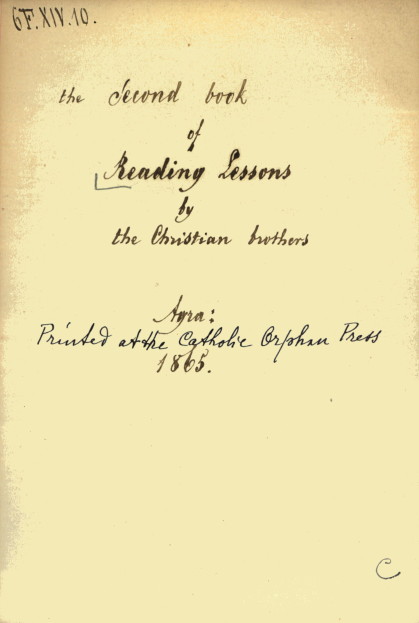 6F.XIV.10.
the Second book
of
Reading Lessons
by
the Christian brothers
Agra:
Printed at the Catholic Orphan Press
1865.
C